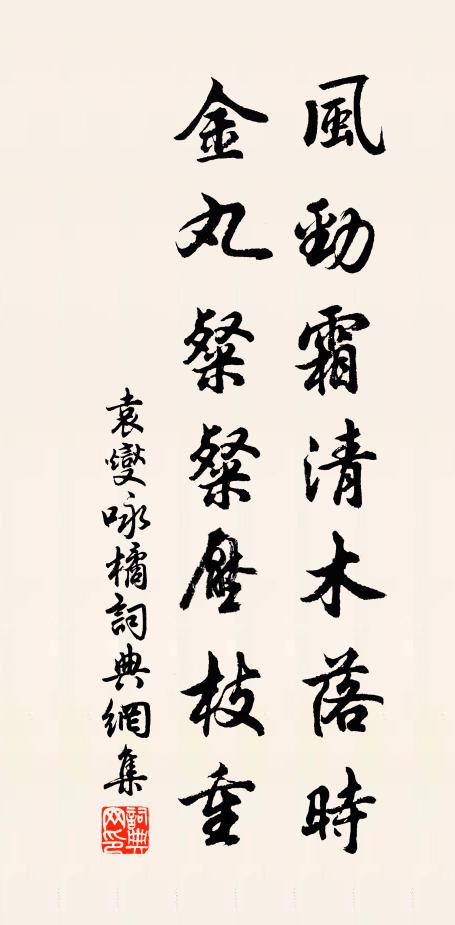 風勁霜清木落時
金丸粲粲壓枝重
袁燮咏橘詞典網集
詞典网印